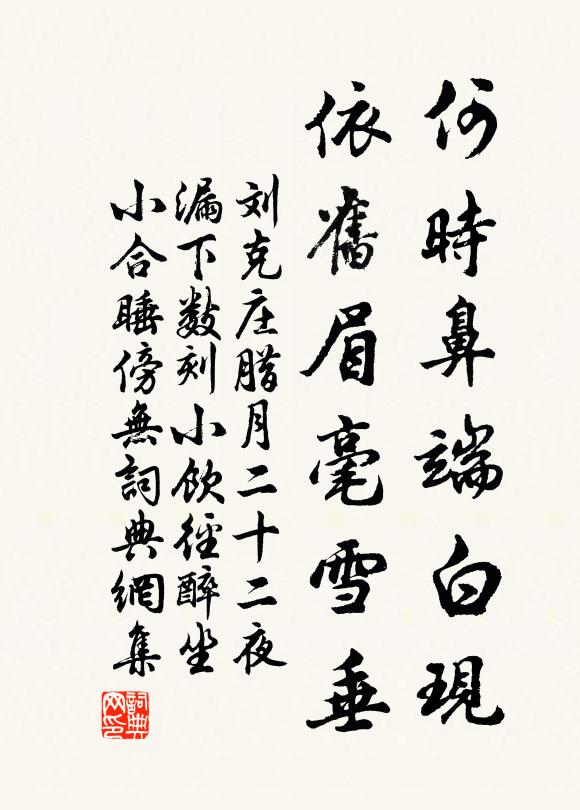 何時鼻端白現
依舊眉毫雪垂
刘克庄腊月二十二夜
漏下数刻小飲徑醉坐
小合睡傍無詞典網集
詞典網印